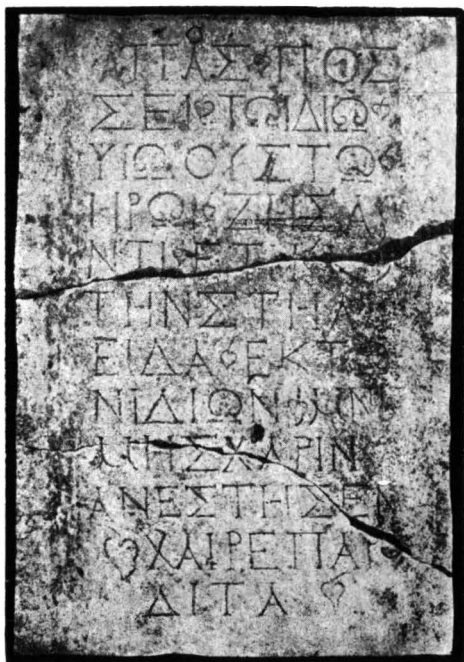 ΑΤΤΑΣ ❦ ΠΟΣ
ΣΕΙ ❦ ΤΩ ΙΔΙΩ ❦
ΥΙΩ ΟΥΣΤΩ ❦
ΗΡΩ ❦ ΖΗΣΑ
ΝΤΙ ❦ ΕΤ Κ
ΤΗΝ ΣΤΗΛ
ΕΙΔΑ ❦ ΕΚ ΤΩ
Ν ΙΔΙΩΝ ❦ ΜΝ
ΜΗΣ ΧΑΡΙΝ
ΑΝΕΣΤΗΣΕΝ
❦ ΧΑΙΡΕ ΠΑΡΟ
ΔΙΤΑ ❦